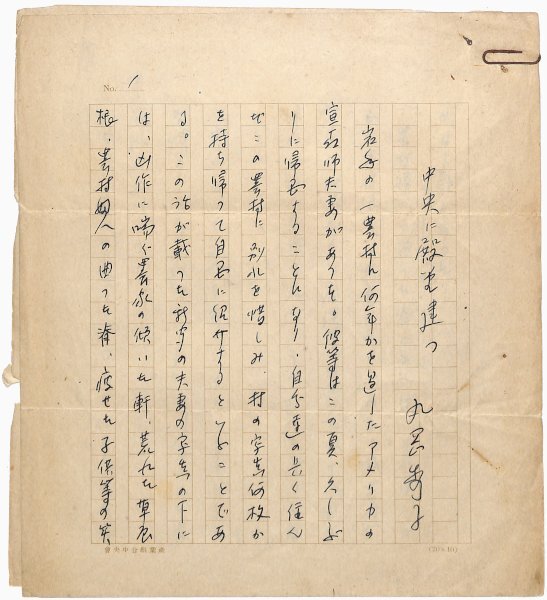 No. 1
中央に殿堂建つ
丸岡秀子
岩手の一農村に何年かを過したアメリカの
宣教師夫妻があつた。彼等はこの夏、久しぶ
りに帰国することになり、自分達の長く住ん
だこの農村に別れを惜しみ、村の写真何枚か
を持ち帰つて自国に紹介するといふことであ
る。この話が載つた新聞の夫妻の写真の下に
は、凶作に喘ぐ農家の傾いた軒、荒れた草屋
根、農村婦人の曲つた脊、痩せた子供等の笑
産業組合中央會
(20×10)